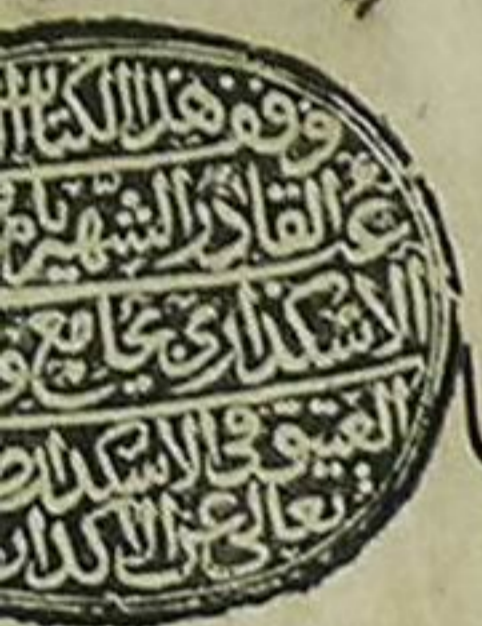 وقف هذا الكتاب
عبد القادر الشهير بام
الاسكداري بجامع و
العتيق في الاسكدار
تعالى عن الاكدار